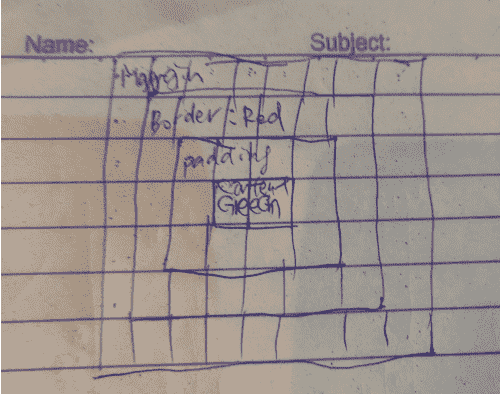 Name: Subject:
Margin
Border: Red
padding
Content
Green